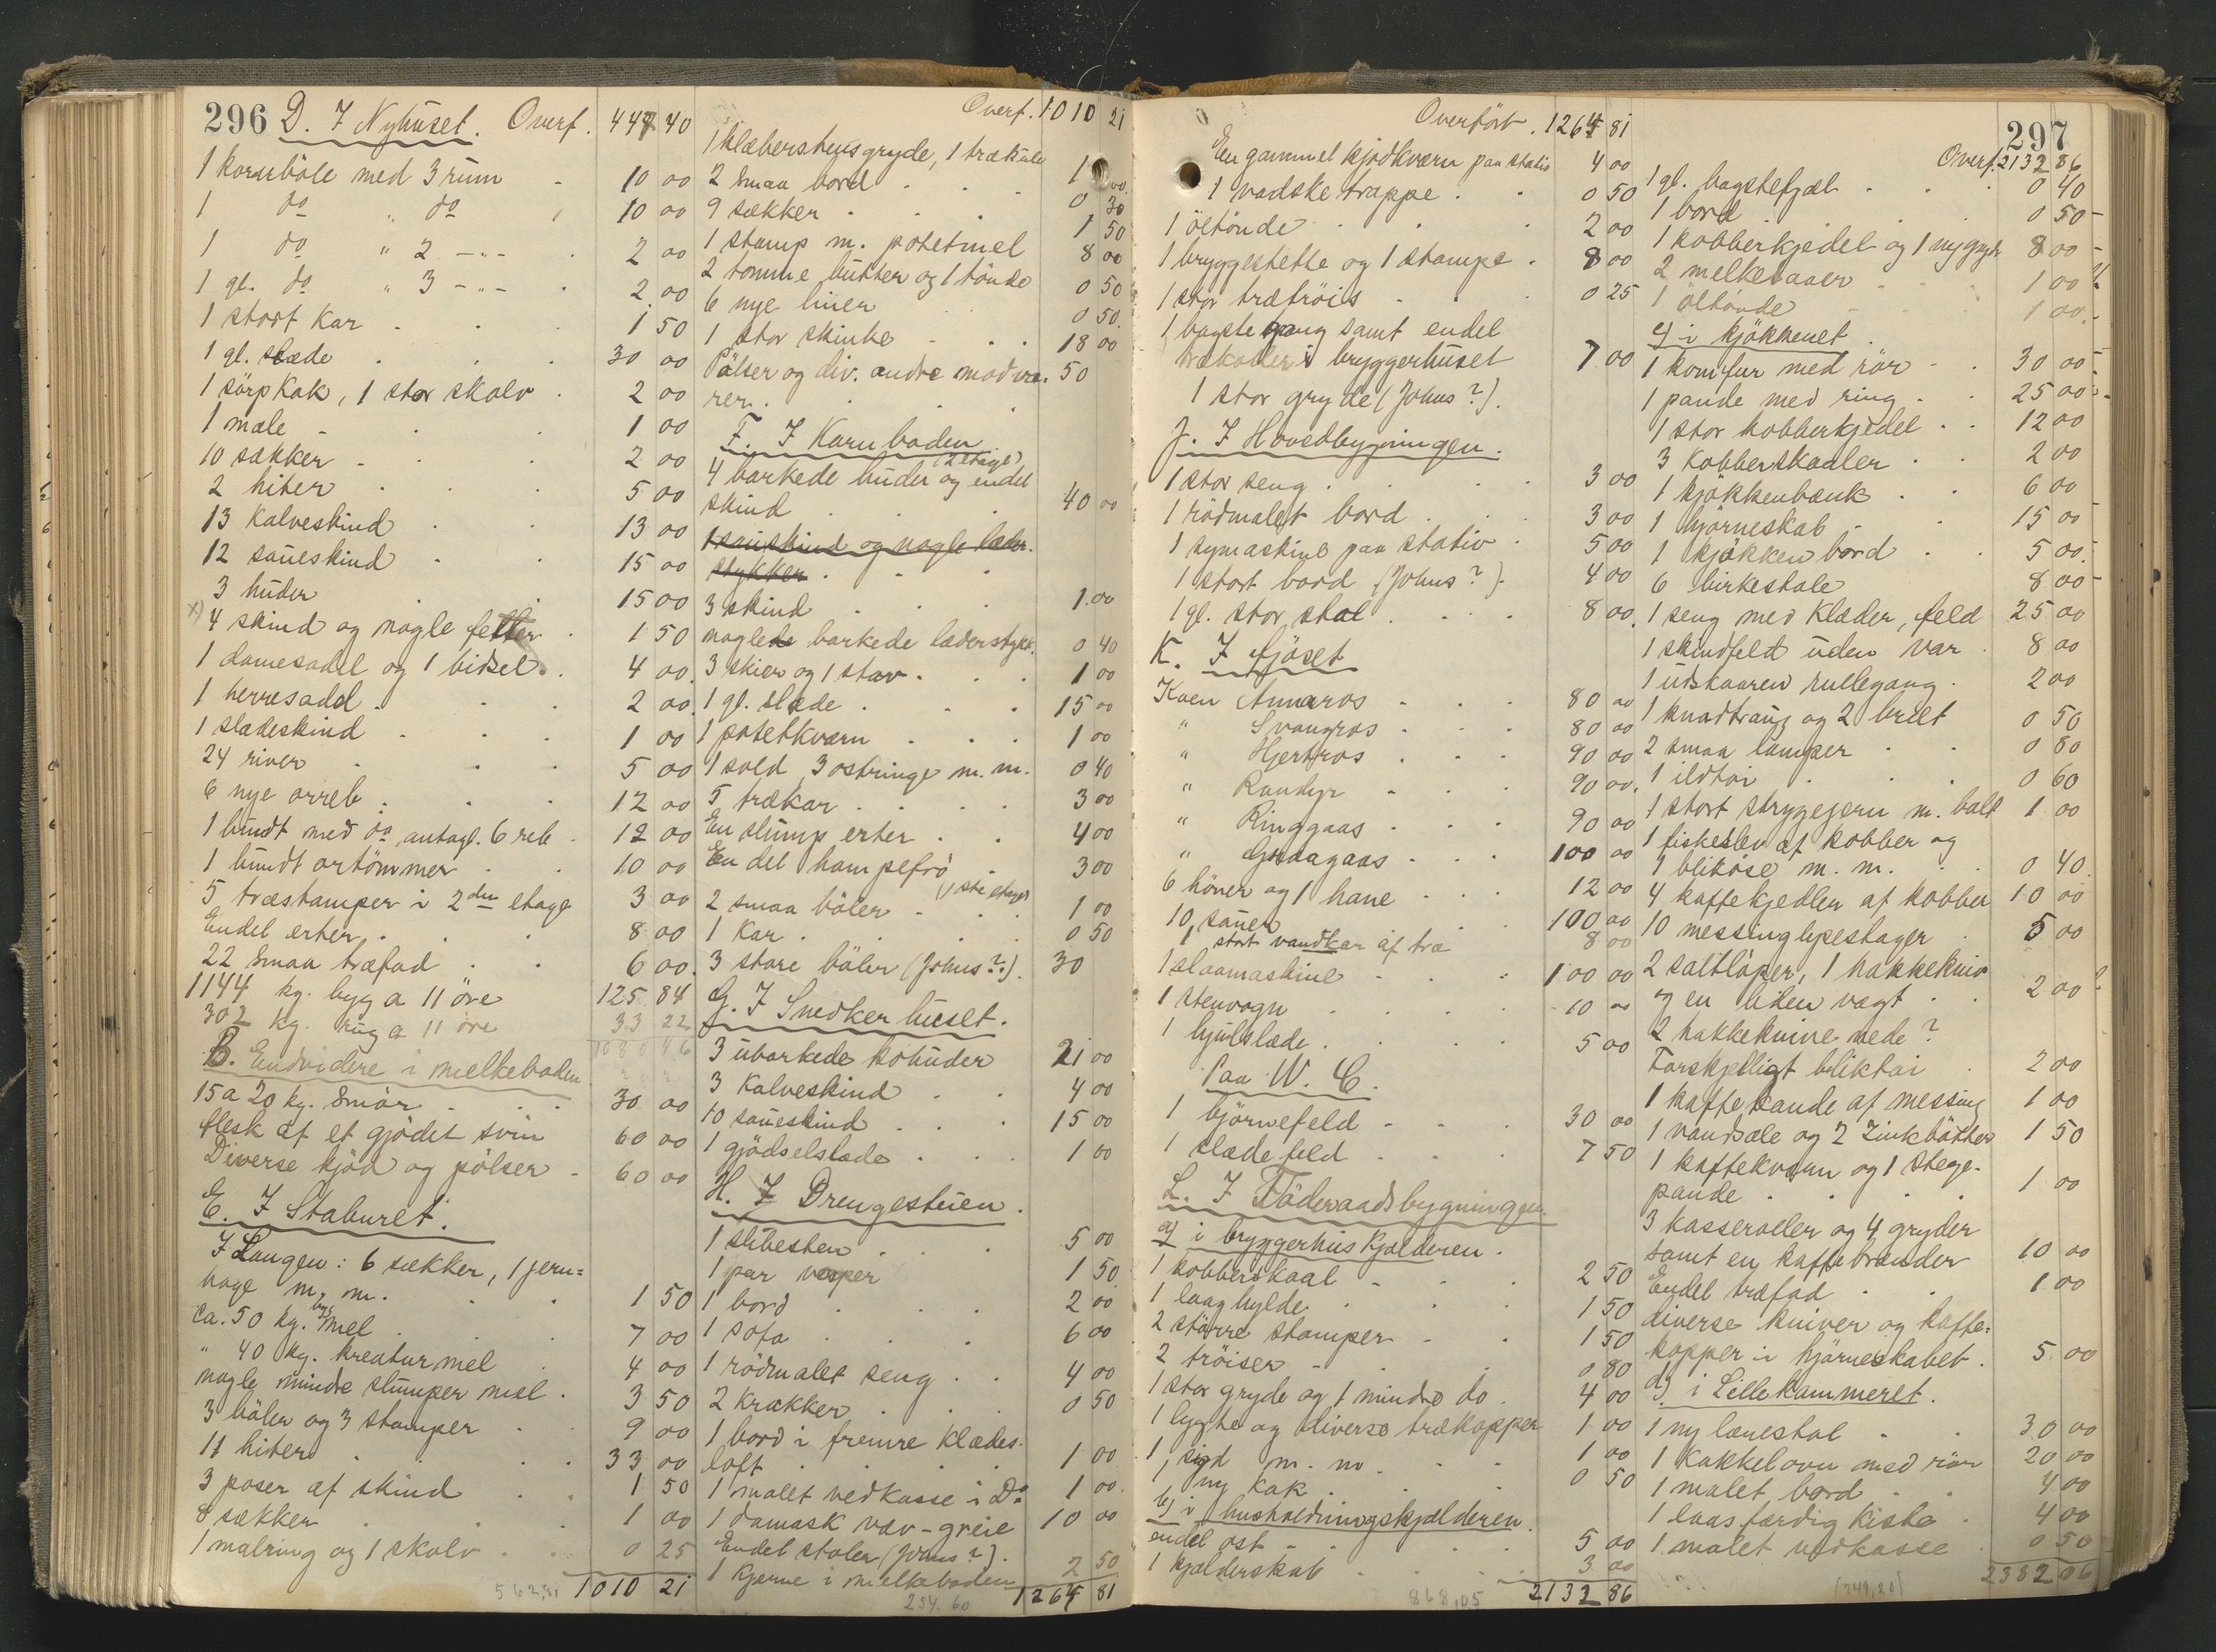 296 D. I Nyhuset. Overf. 447 40
1 kornböle med 3 rum 10 00
1 do " do 10 00
1 do " 2 -"- 2 00
1 gl. do " 3 -"- 2 00
1 stort kar 1 50
1 gl. slæde 30 00
1 sörpkak, 1 stor skolv 2 00
1 mæle 1 00
10 sækker 2 00
2 hiter 5 00
13 kalveskind 13 00
12 saueskind 15 00
3 huder 15 00
x) 4 skind og nogle fetler 1 50
1 damesadel og 1 bidsel 4 00
1 herresadel 2 00
1 slædeskind 1 00
24 river 5 00
6 nye orreb 12 00
1 bundt med do, antagl. 6 reb 12 00
1 bundt ortömmer 10 00
5 træstamper i 2den etage 3 00
Endel erter 8 00
22 smaa træfad 6 00
1144 kg. byg a 11 öre 125 84
302 kg. rug a 11 öre 33 22
1080 46
B. Endvidere i melkeboden
15 a 20 kg. Smör 30 00
flesk af et gjödet svin 60 00
Diverse kjöd og pölser 60 00
E. I Staburet.
I Langen: 6 sækker, 1 jern=
hage m. m. 1 50
ca. 50 kg. byg mel 7 00
" 40 kg. kreaturmel 4 00
nogle mindre slumper mel 3 50
3 böler og 3 stamper 9 00
11 hiter 33 00
3 poser af skind 1 50
8 sækker 1 00
1 malring og 1 skolv 0 25
562,81 1010 21
Overf. 1010 21
1 klæberstensgryde, 1 trækule 1 00
2 smaa bord 0 30
9 sækker 1 50
1 stamp m. potetmel 8 00
2 tomme butter og 1 tönde 0 50
6 nye liner 0 50
1 stor skinke 18 00
Pölser og div. andre madva- 50
rer
F. I Karnboden
(2 etage)
4 barkede huder og endel
skind 40 00
1 saueskind og nogle læder-
stykker
3 skind 1 00
nogle barkede læderstykk. 0 40
3 skier og 1 stav 1 00
1 gl. slæde 15 00
1 potetkværn 1 00
1 sold, 3 ostringe m. m. 0 40
5 trækar 3 00
En slump erter 4 00
En del hampefrö 3 00
(1ste etage)
2 smaa böler 1 00
1 Kar 0 50
3 store böler (Johus?) 30
G. I Snedkerhuset.
3 ubarkede kohuder 21 00
3 Kalveskind 4 00
10 saueskind 15 00
1 gjödselslæde 1 00
H. I Drengestuen.
1 slibesten 5 00
1 par vesper 1 50
1 bord 2 00
1 sofa 6 00
1 rödmalet seng 4 00
2 krakker 0 50
1 bord i fremre klædes-
loft 1 00
1 malet vedkasse i Do 1 00
1 damask væv-greie 10 00
Endel stoler (Johus?)
1 Kjerne i melkeboden 2 50
254.60 1264 81
Overført. 1264 81
En gammel kjödkværn paa stativ 4 00
1 vadsketrappe 0 50
1 öltönde 2 00
1 bryggestette og 1 stampe 8 00
1 stor trætröis 0 25
1 bagstegang samt endel
trækopper i bryggerhuset 7 00
1 stor gryde (Johus?)
J. I Hovedbygningen.
1 stor seng 3 00
1 rödmalet bord 3 00
1 symaskine paa stativ 5 00
1 stort bord (Johus?) 4 00
1 gl. stor stol 8 00
K. I fjöset
Koen Annaros 80 00
" Svangros 80 00
" Hjertros 90 00
" Randyr 90 00
" Ringgaas 90 00
" Graagaas 100 00
6 höner og 1 hane 12 00
10 sauer 100 00
1 stort vandkar af træ 8 00
1 slaamaskine 100 00
1 stenvogn 10 00
1 hjulslæde 5 00
Paa W. C.
1 björnefeld 30 00
1 slædefeld 7 50
L. I Föderaadsbygningen
a) i bryggerhuskjælderen.
1 kobberskaal 2 50
1 laaghylde 1 50
2 större stamper 1 50
2 tröiser 0 80
1 stor gryde og 1 mindre do 4 00
1 lygte og diverse trækopper 1 00
1 sigd m. m. 1 00
1 ny kak 0 50
b) i husholdningskjælderen.
endel ost 5 00
1 kjælderskab 3 00
868,05 2132 86
297
Overf. 2132 86
1 gl. bagstefjæl 0 40
1 bord 0 50
1 kobberkjedel og 1 ny gryde 8 00
2 melkebaaer 1 00
1 öltönde 1 00
c) i kjökkenet
1 komfur med rör 30 00
1 pande med ring 25 00
1 stor kobberkjedel 12 00
3 Kobberskaaler 2 00
1 kjökkenbænk 6 00
1 hjörneskab 15 00
1 kjökkenbord 5 00
6 birkestole 8 00
1 seng med klæder, feld 25 00
1 skindfeld uden var 8 00
1 udskaaren rullegang 2 00
1 knadtraug og 2 bret 0 50
2 smaa lamper 0 80
1 ildtöi 0 60
1 stort strygejern m. bolt 1 00
1 fiskeslev af kobber og
1 bliköse m. m. 0 40
4 kaffekjedler af kobber 10 00
10 messinglysestager 5 00
2 saltlöper, 1 hakkekniv
og en liden vægt 2 00 ?
2 hakkeknive nede?
Forskjelligt bliktöi 2 00
1 kaffekande af messing 1 00
1 vandsale og 2 Zinkbötter 1 50
1 kaffekværn og 1 stege-
pande 1 00
3 kasseroller og 4 gryder
samt en kaffebrænder 10 00
Endel træfad 1 00
diverse kniver og kaffe=
kopper i hjörneskabet 5 00
d) i Lillekammeret.
1 ny lænestol 30 00
1 Kakkelovn med rör 20 00
1 malet bord 4 00
1 laasfærdig kiste 4 00
1 malet vedkasse 0 50
(249,20) 2382 06